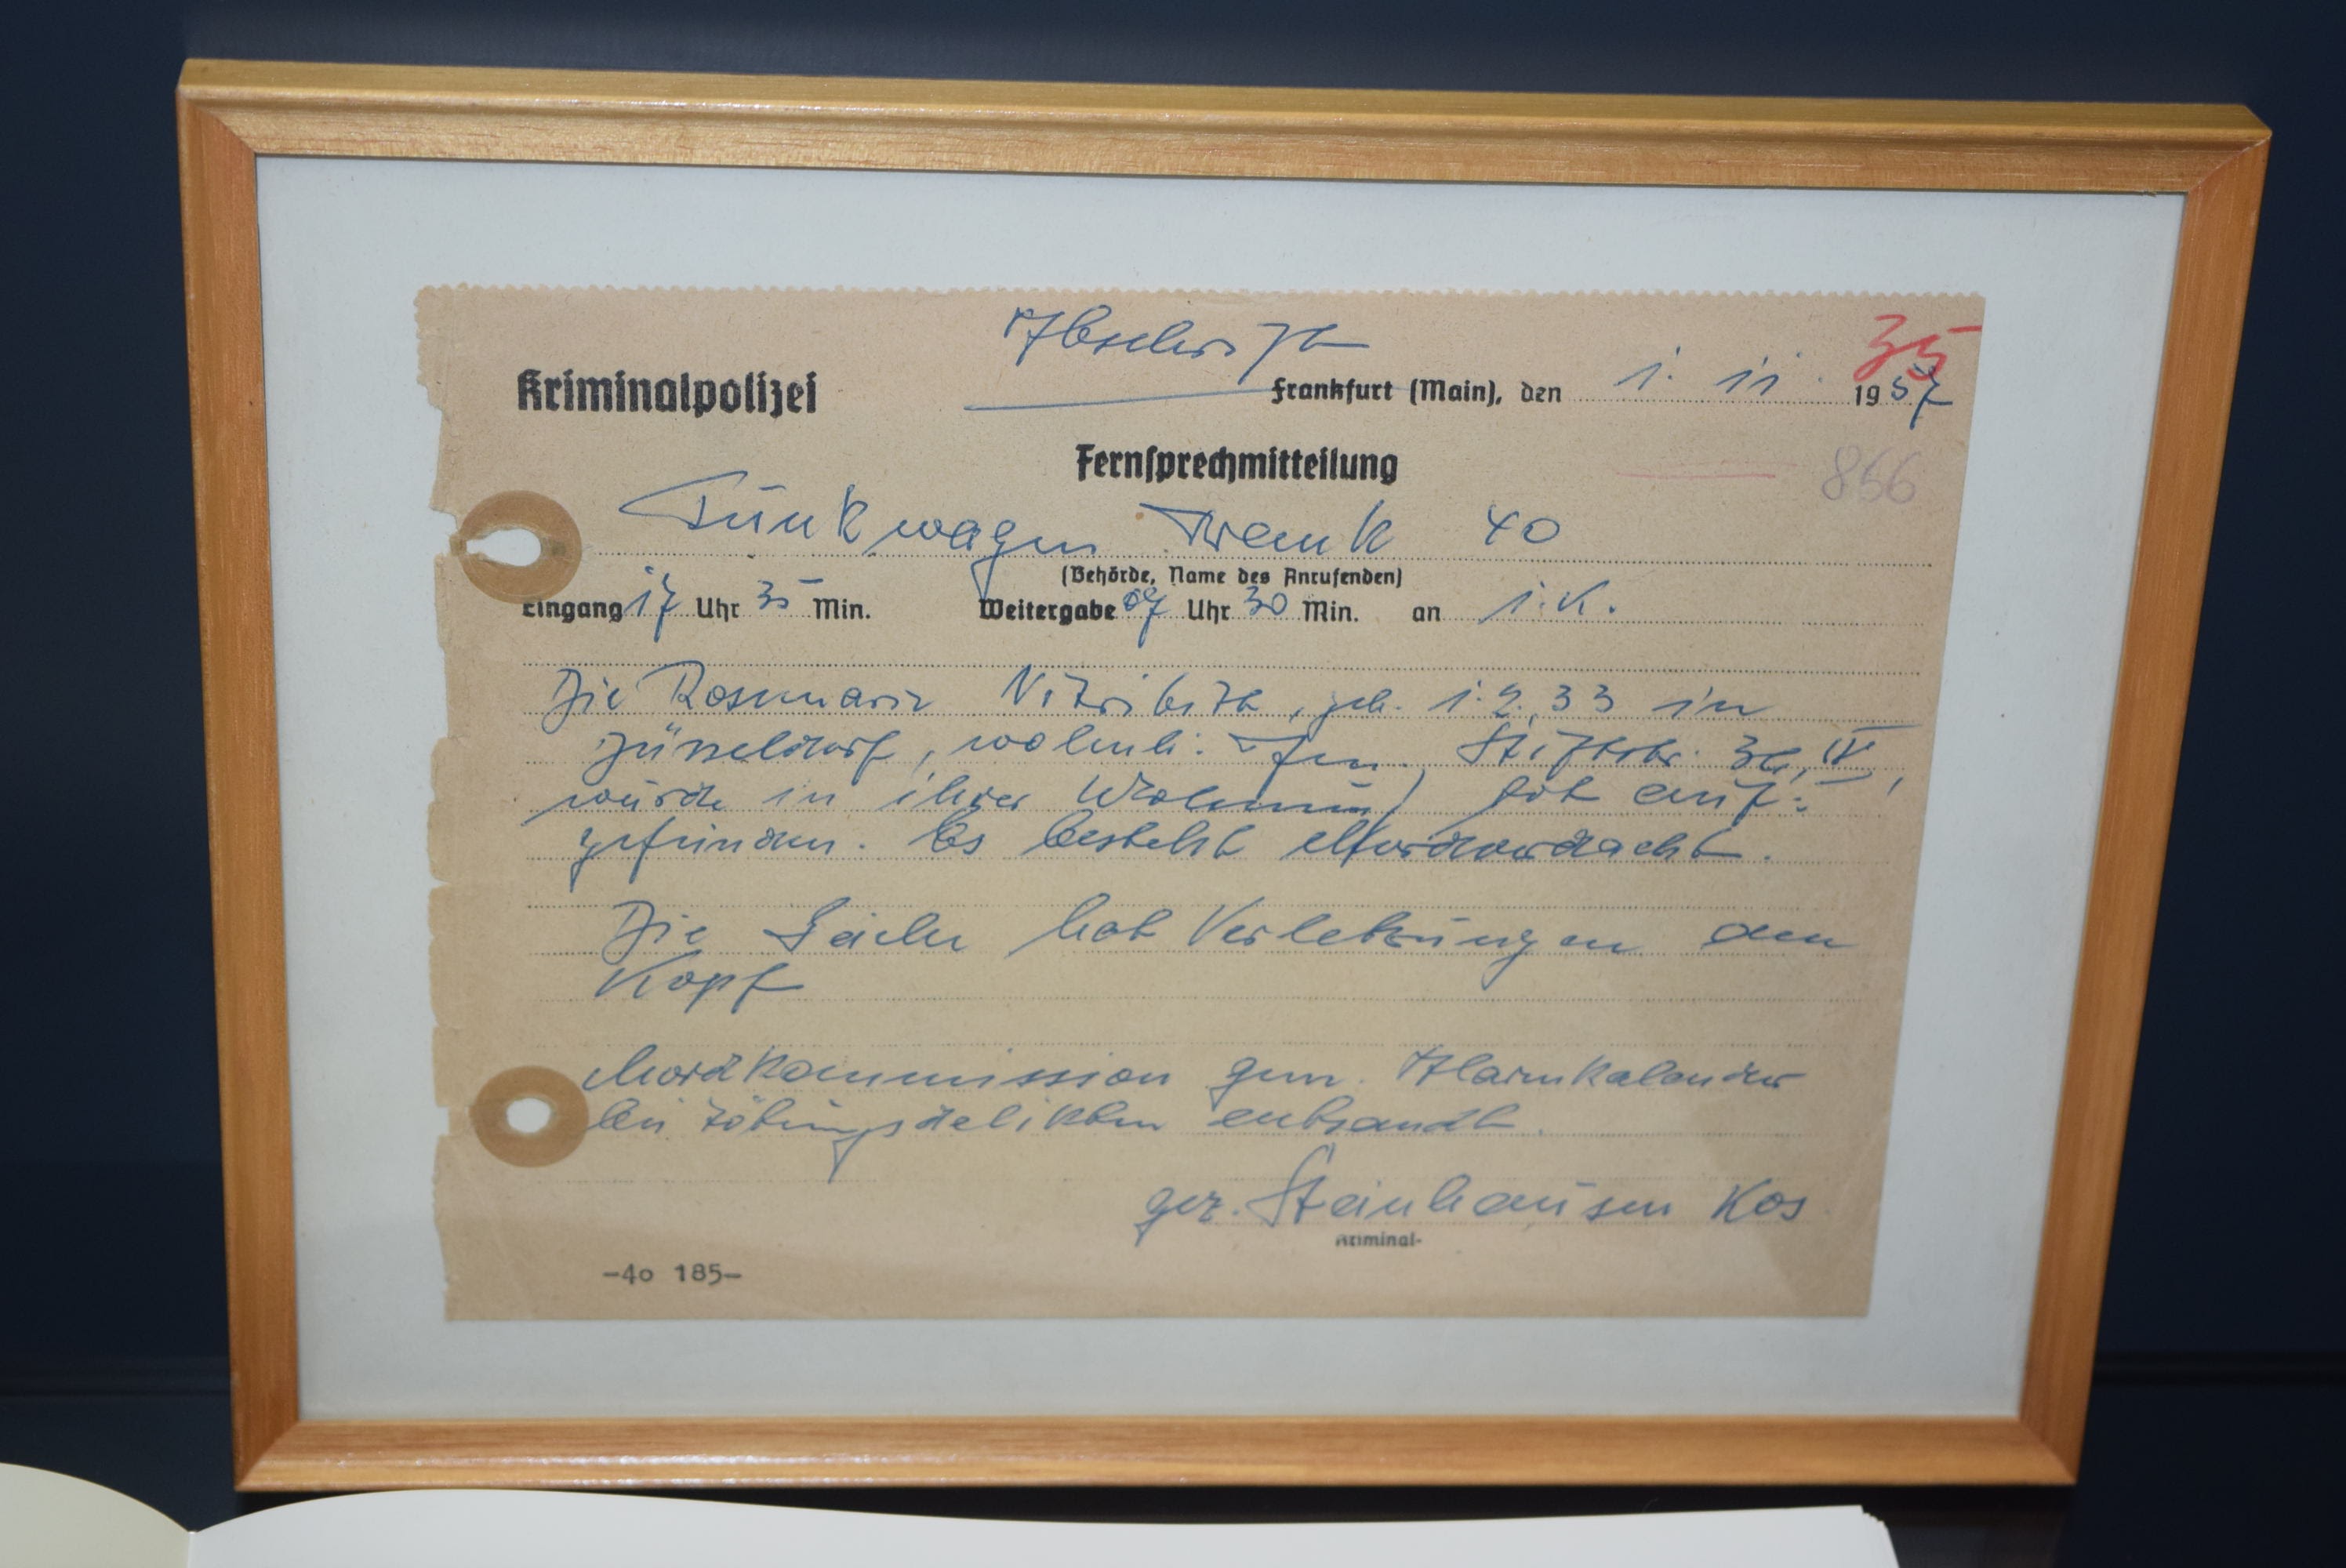 Abschrift
35
Kriminalpolizei Frankfurt (Main), den 1. 11. 1957
Fernsprechmitteilung
866
Funkwagen Frank 40
(Behörde, Name des Anrufenden)
Eingang 17 Uhr 35 Min. Weitergabe 07 Uhr 30 Min. an 1.K.
Die Rosemarie Nitribitt, geb. 1.2.33 in
Düsseldorf, wohnh. Ffm., Stiftstr. 36, IV,
wurde in ihrer Wohnung tot auf-
gefunden. Es besteht Mordverdacht.
Die Leiche hat Verletzungen am
Kopf
Mordkommission gem. Alarmkalender
bei Tötungsdelikten entsandt.
gez. Steinhausen KOS
Kriminal-
-4o 185-